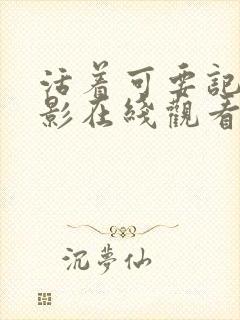 活着可要記
影在綫觀看
沉夢仙